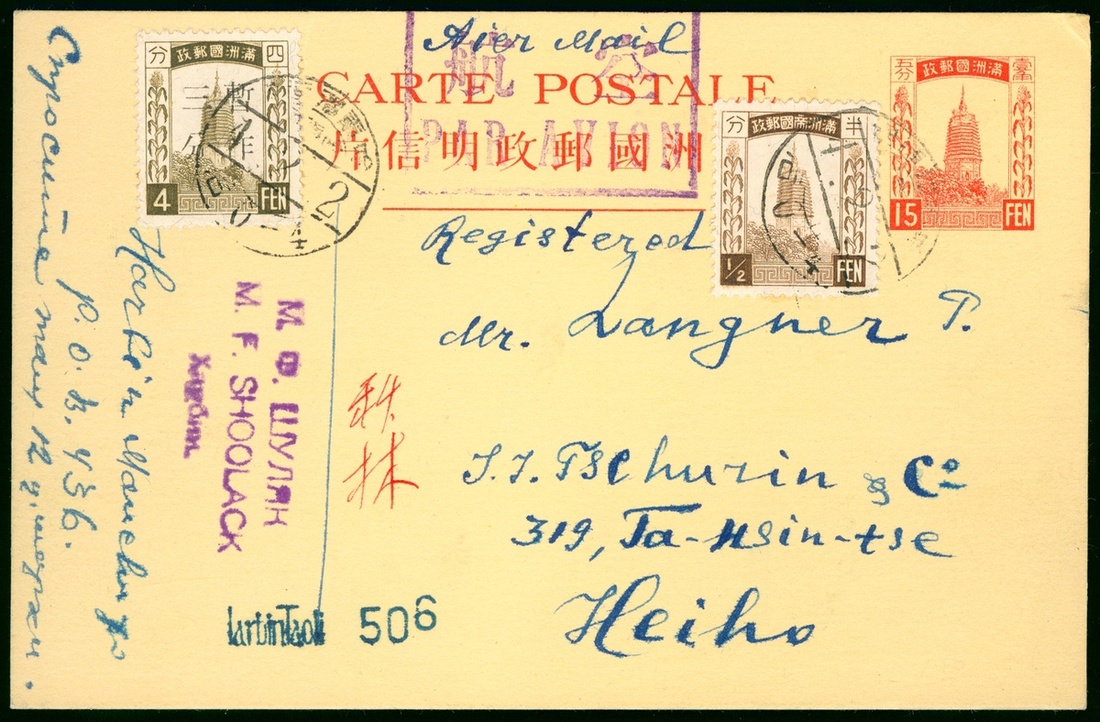 Aier Mail
航空
PAR AVION
CARTE POSTALE
片信明政郵國洲
分 四
政郵國洲滿
暫作
三分
4 FEN
分 半
政郵國帝洲滿
½ FEN
政郵國洲滿
15 FEN
Registered
Mr. Langner P.
I. J. Tschurin & Co
319, Ta-Hsin-tse
Heiho
秋林
М. Ф. ШУЛЯК
M. F. SHOOLACK
Харбин
Harbin Manchu
P. O. B. 436.
506